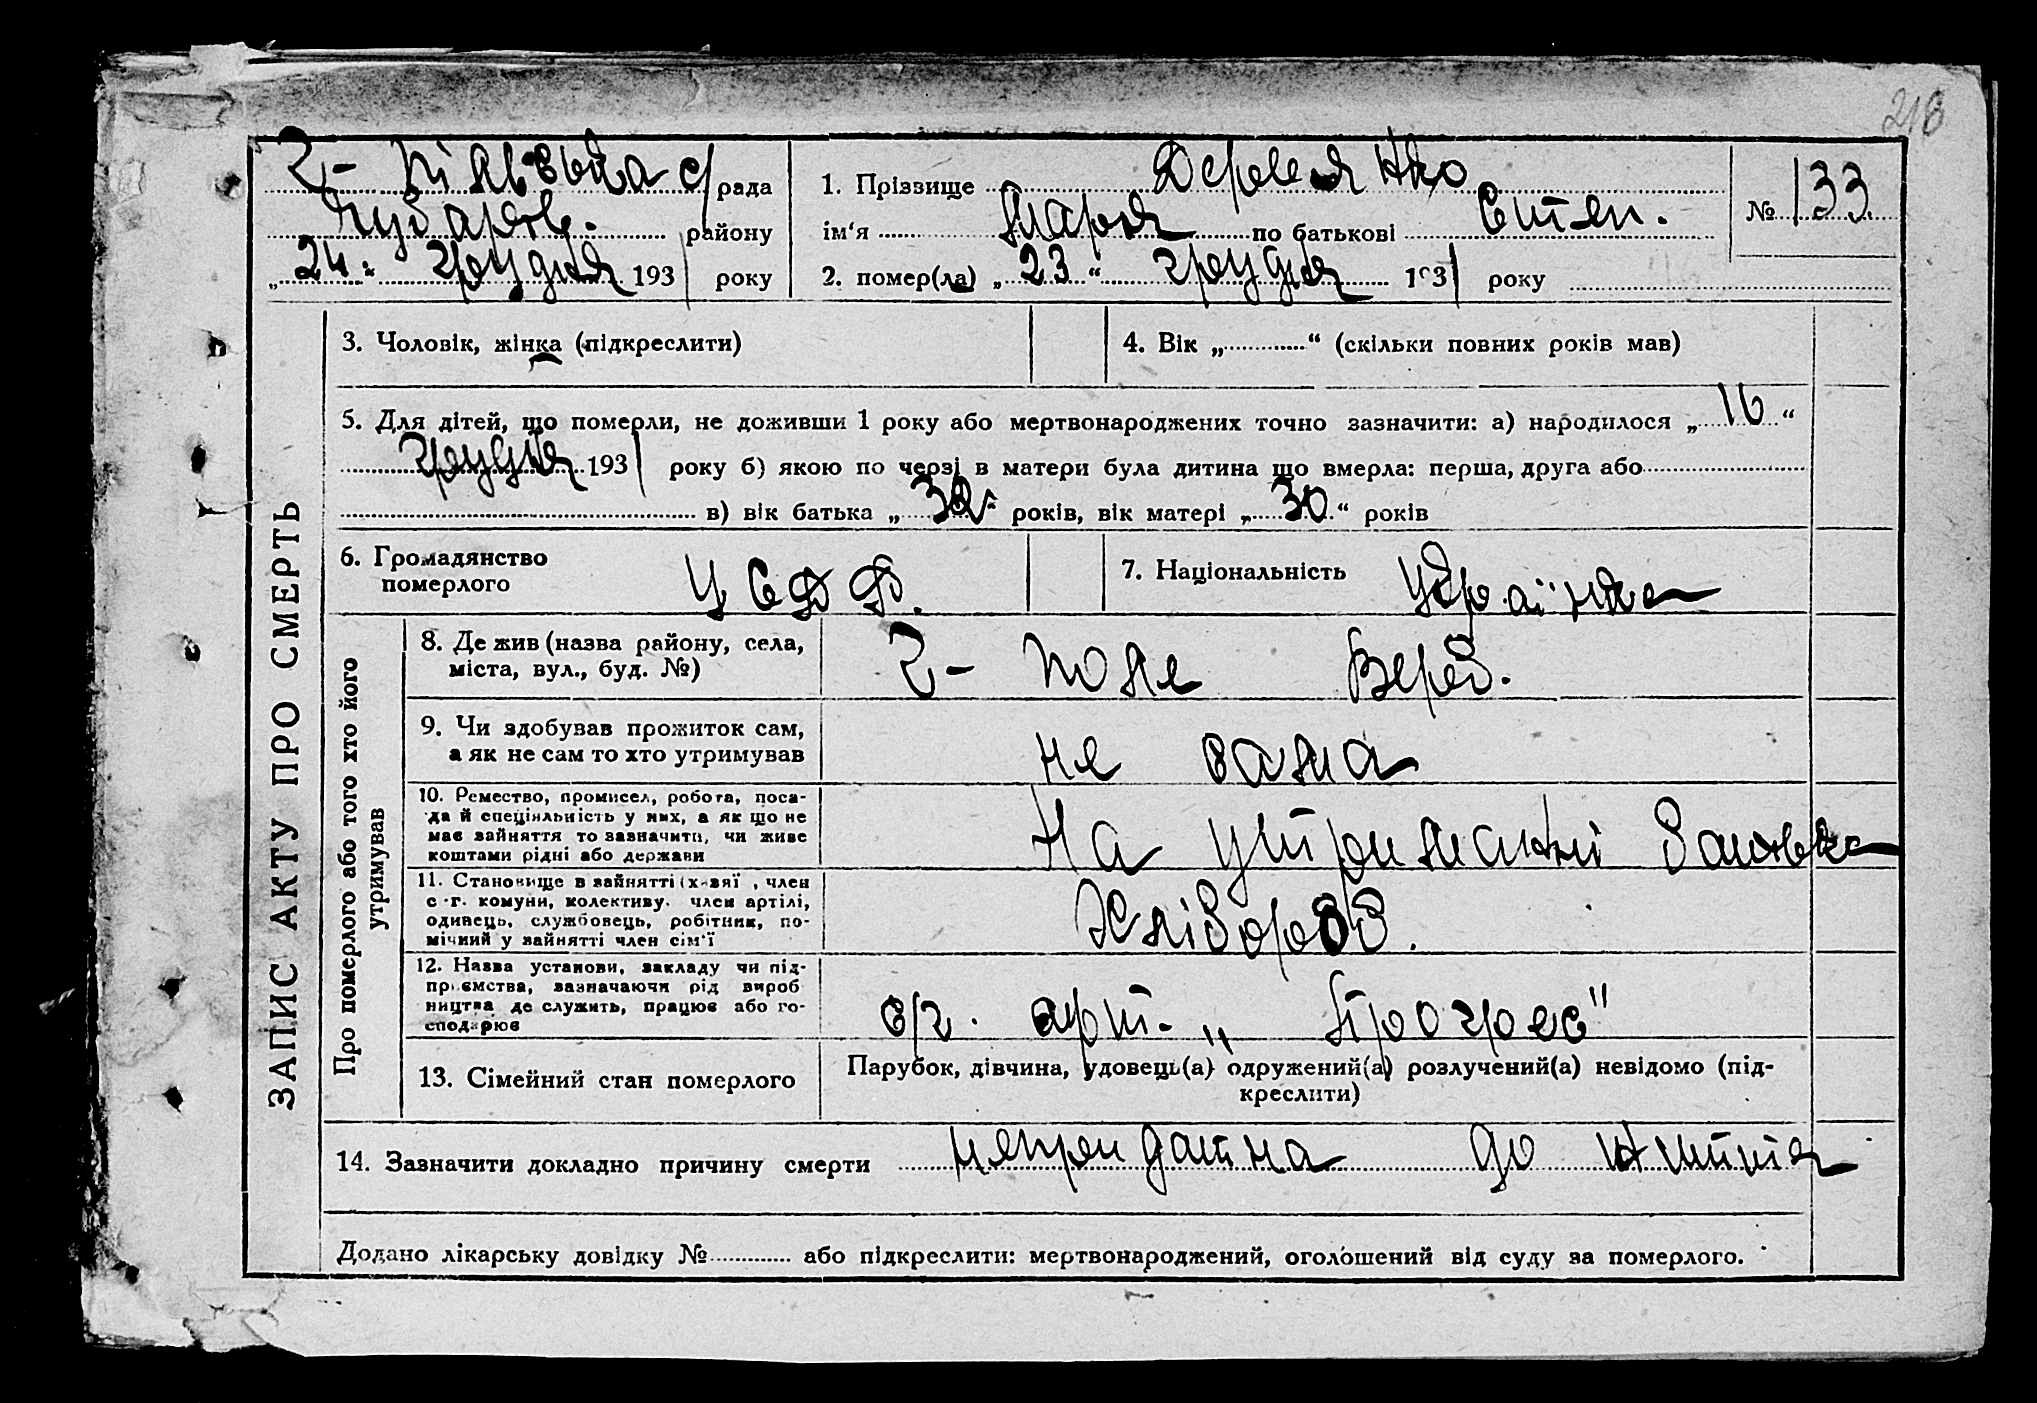 213
Г- Пільська с/рада
Губарів. району
„24“ грудня 1931 року
1. Прізвище Деревянко
ім‘я Марія по батькові Степ.
2. помер(ла) „23“ грудня 1931 року
№ 133
ЗАПИС АКТУ ПРО СМЕРТЬ
3. Чоловік, жінка (підкреслити)
4. Вік „............“ (скільки повних років мав)
5. Для дітей, що померли, не доживши 1 року або мертвонароджених точно зазначити: а) народилося „16“
грудня 1931 року б) якою по черзі в матери була дитина що вмерла: перша, друга або
в) вік батька „32“ років, вік матері „30“ років
6. Громадянство
померлого
УСРР.
7. Національність Українка
Про померлого або того хто його
утримував
8. Де жив (назва району, села,
міста, вул., буд. №)
Г- Поле
9. Чи здобував прожиток сам,
а як не сам то хто утримував
не сама
10. Ремество, промисел, робота, поса-
да й спеціяльність у них, а як що не
має зайняття то зазначити, чи живе
коштами рідні або держави
На утриманні батька
11. Становище в зайнятті (х-вяї, член
с.-г. комуни, колективу, член артілі,
одинець, службовець, робітник, по-
мічний у зайнятті член сім‘ї
Хлібороб.
12. Назва установи, закладу чи під-
приємства, зазначаючи рід вироб
ництва де служить, працює або го-
сподарює
с/г. арт. „Прогрес"
13. Сімейний стан померлого
Парубок, дівчина, удовець(а) одружений(а) розлучений(а) невідомо (під-
креслити)
14. Зазначити докладно причину смерти непридатна до життя
Додано лікарську довідку №............ або підкреслити: мертвонароджений, оголошений від суду за померлого.